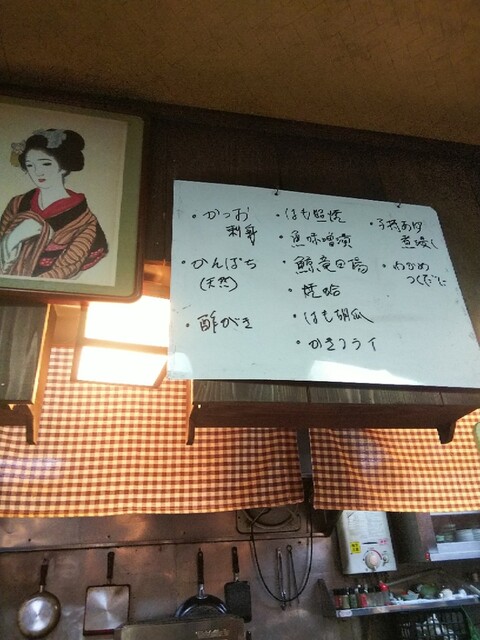 ・かつお
刺身
・かんぱち
(天然)
・酢がき
・はも照焼
・魚味噌漬
・鯨竜田揚
・焼蛤
・はも胡瓜
・かきフライ
・子持あゆ
煮浸し
・わかめ
つくだに